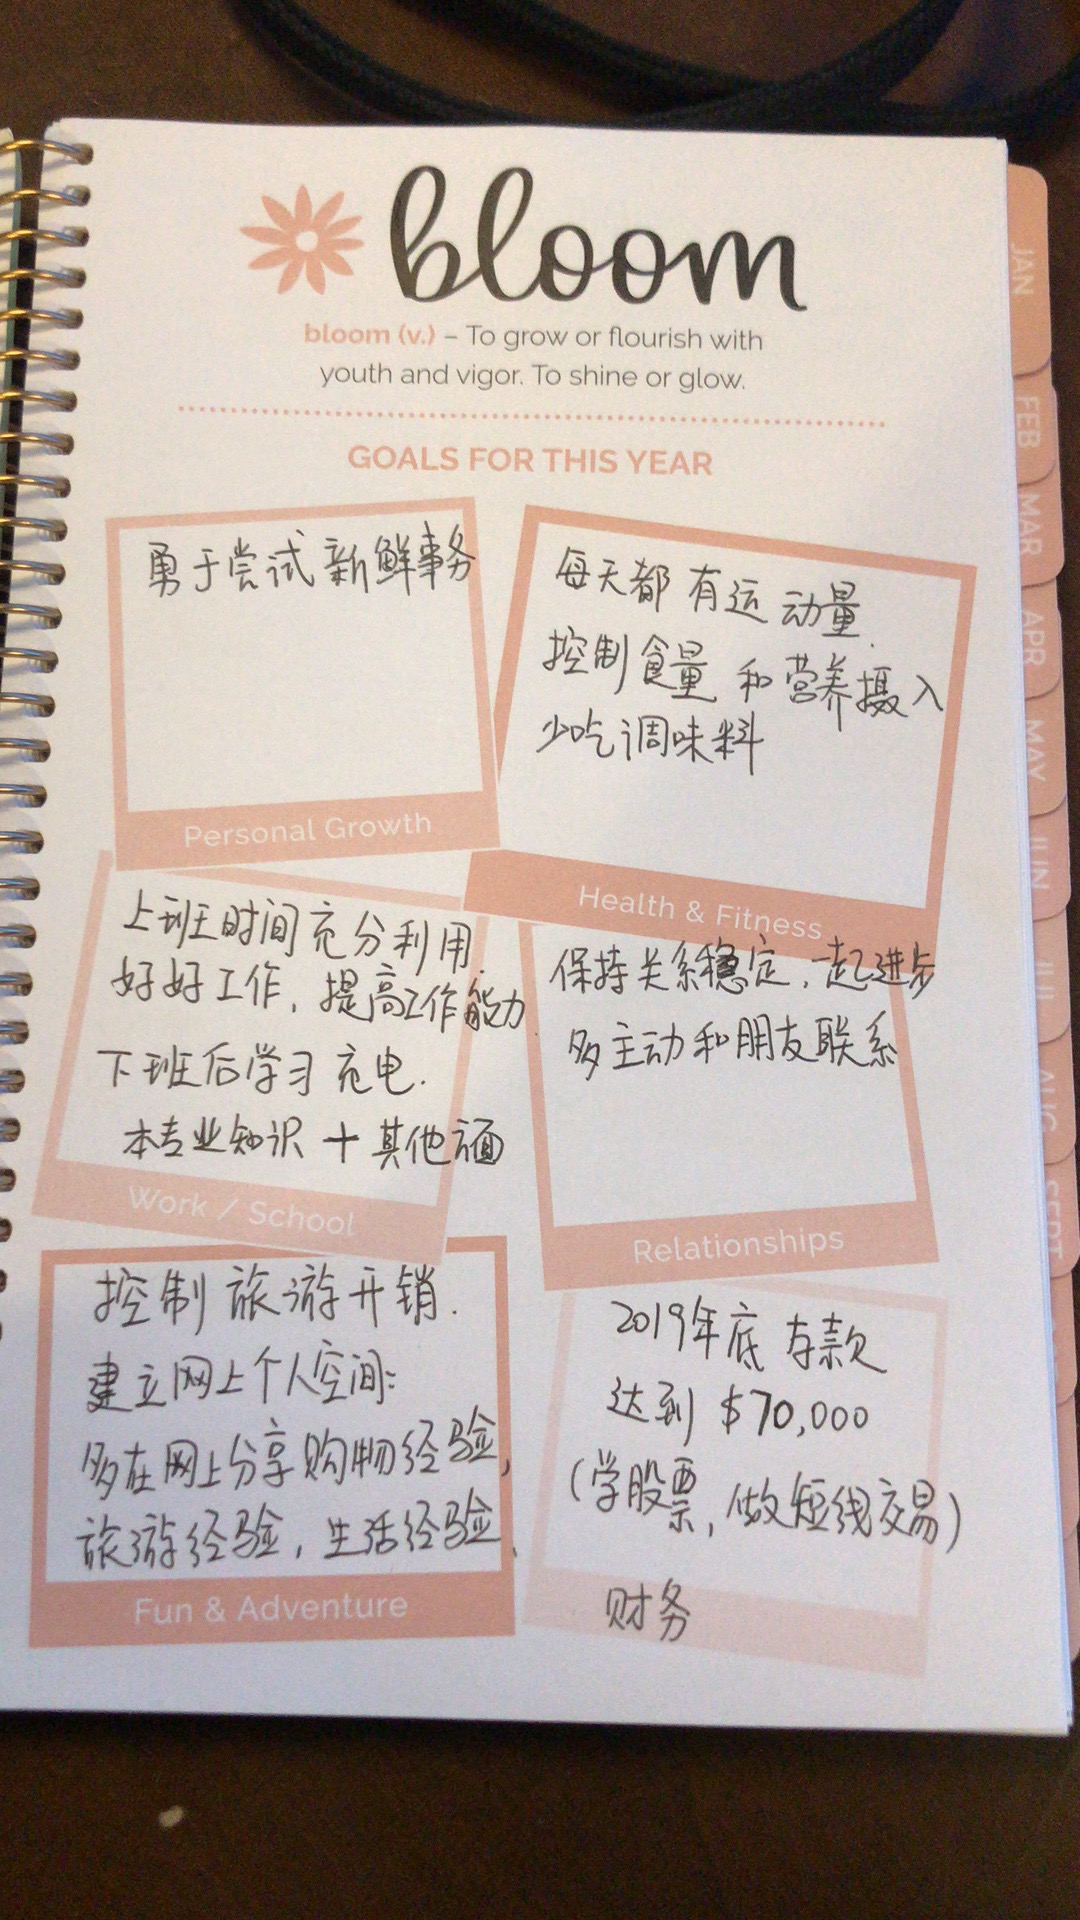 bloom
bloom (v.) – To grow or flourish with
youth and vigor. To shine or glow.
GOALS FOR THIS YEAR
勇于尝试新鲜事务
Personal Growth
每天都有运动量.
控制食量 和营养摄入
少吃调味料
Health & Fitness
上班时间充分利用.
好好工作, 提高工作能力.
下班后学习充电.
本专业知识 + 其他方面
Work / School
保持关系稳定, 一起进步
多主动和朋友联系
Relationships
控制旅游开销.
建立网上个人空间:
多在网上分享购物经验,
旅游经验, 生活经验.
Fun & Adventure
2019年底存款
达到 $70,000
(学股票, 做短线交易)
财务
JAN
FEB
MAR
APR
MAY
JUN
JUL
AUG
SEPT